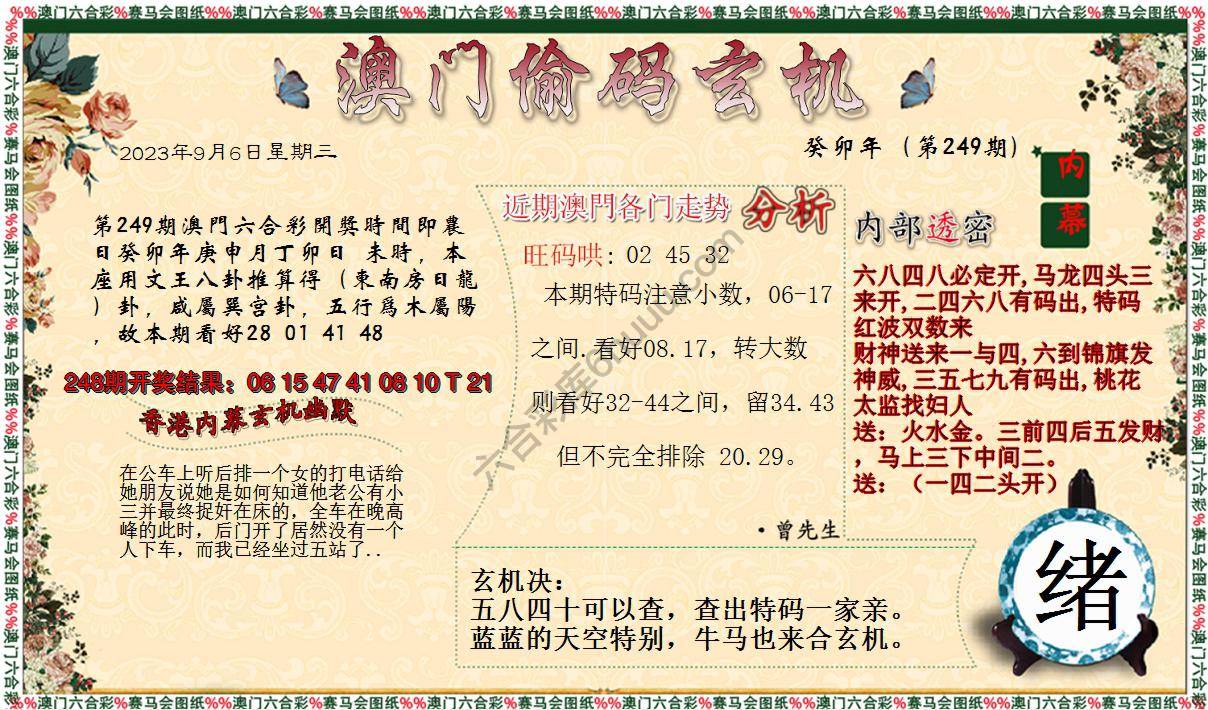 %%澳门六合彩%赛马会图纸%%澳门六合彩%赛马会图纸%%澳门六合彩%赛马会图纸%%澳门六合彩%赛马会图纸%%澳门六合彩%赛马会图纸%%澳门六合彩%赛马会图纸%%
澳门偷码玄机
2023年9月6日星期三
癸卯年（第249期）
内幕
第249期澳門六合彩開獎時間即農
日癸卯年庚申月丁卯日 未時，本
座用文王八卦推算得（東南房日龍
）卦，咸屬巽宫卦，五行爲木屬陽
，故本期看好28 01 41 48
248期开奖结果：06 15 47 41 08 10 T 21
香港内幕玄机幽默
在公车上听后排一个女的打电话给
她朋友说她是如何知道他老公有小
三并最终捉奸在床的，全车在晚高
峰的此时，后门开了居然没有一个
人下车，而我已经坐过五站了..
近期澳門各门走势 分析
旺码哄：02 45 32
本期特码注意小数，06-17
之间.看好08.17，转大数
则看好32-44之间，留34.43
但不完全排除 20.29。
·曾先生
内部透密
六八四八必定开,马龙四头三
来开,二四六八有码出,特码
红波双数来
财神送来一与四,六到锦旗发
神威,三五七九有码出,桃花
太监找妇人
送：火水金。三前四后五发财
，马上三下中间二。
送：（一四二头开）
玄机决：
五八四十可以查，查出特码一家亲。
蓝蓝的天空特别，牛马也来合玄机。
绪
%%澳门六合彩%赛马会图纸%%澳门六合彩%赛马会图纸%%澳门六合彩%赛马会图纸%%澳门六合彩%赛马会图纸%%澳门六合彩%赛马会图纸%%澳门六合彩%赛马会图纸%%